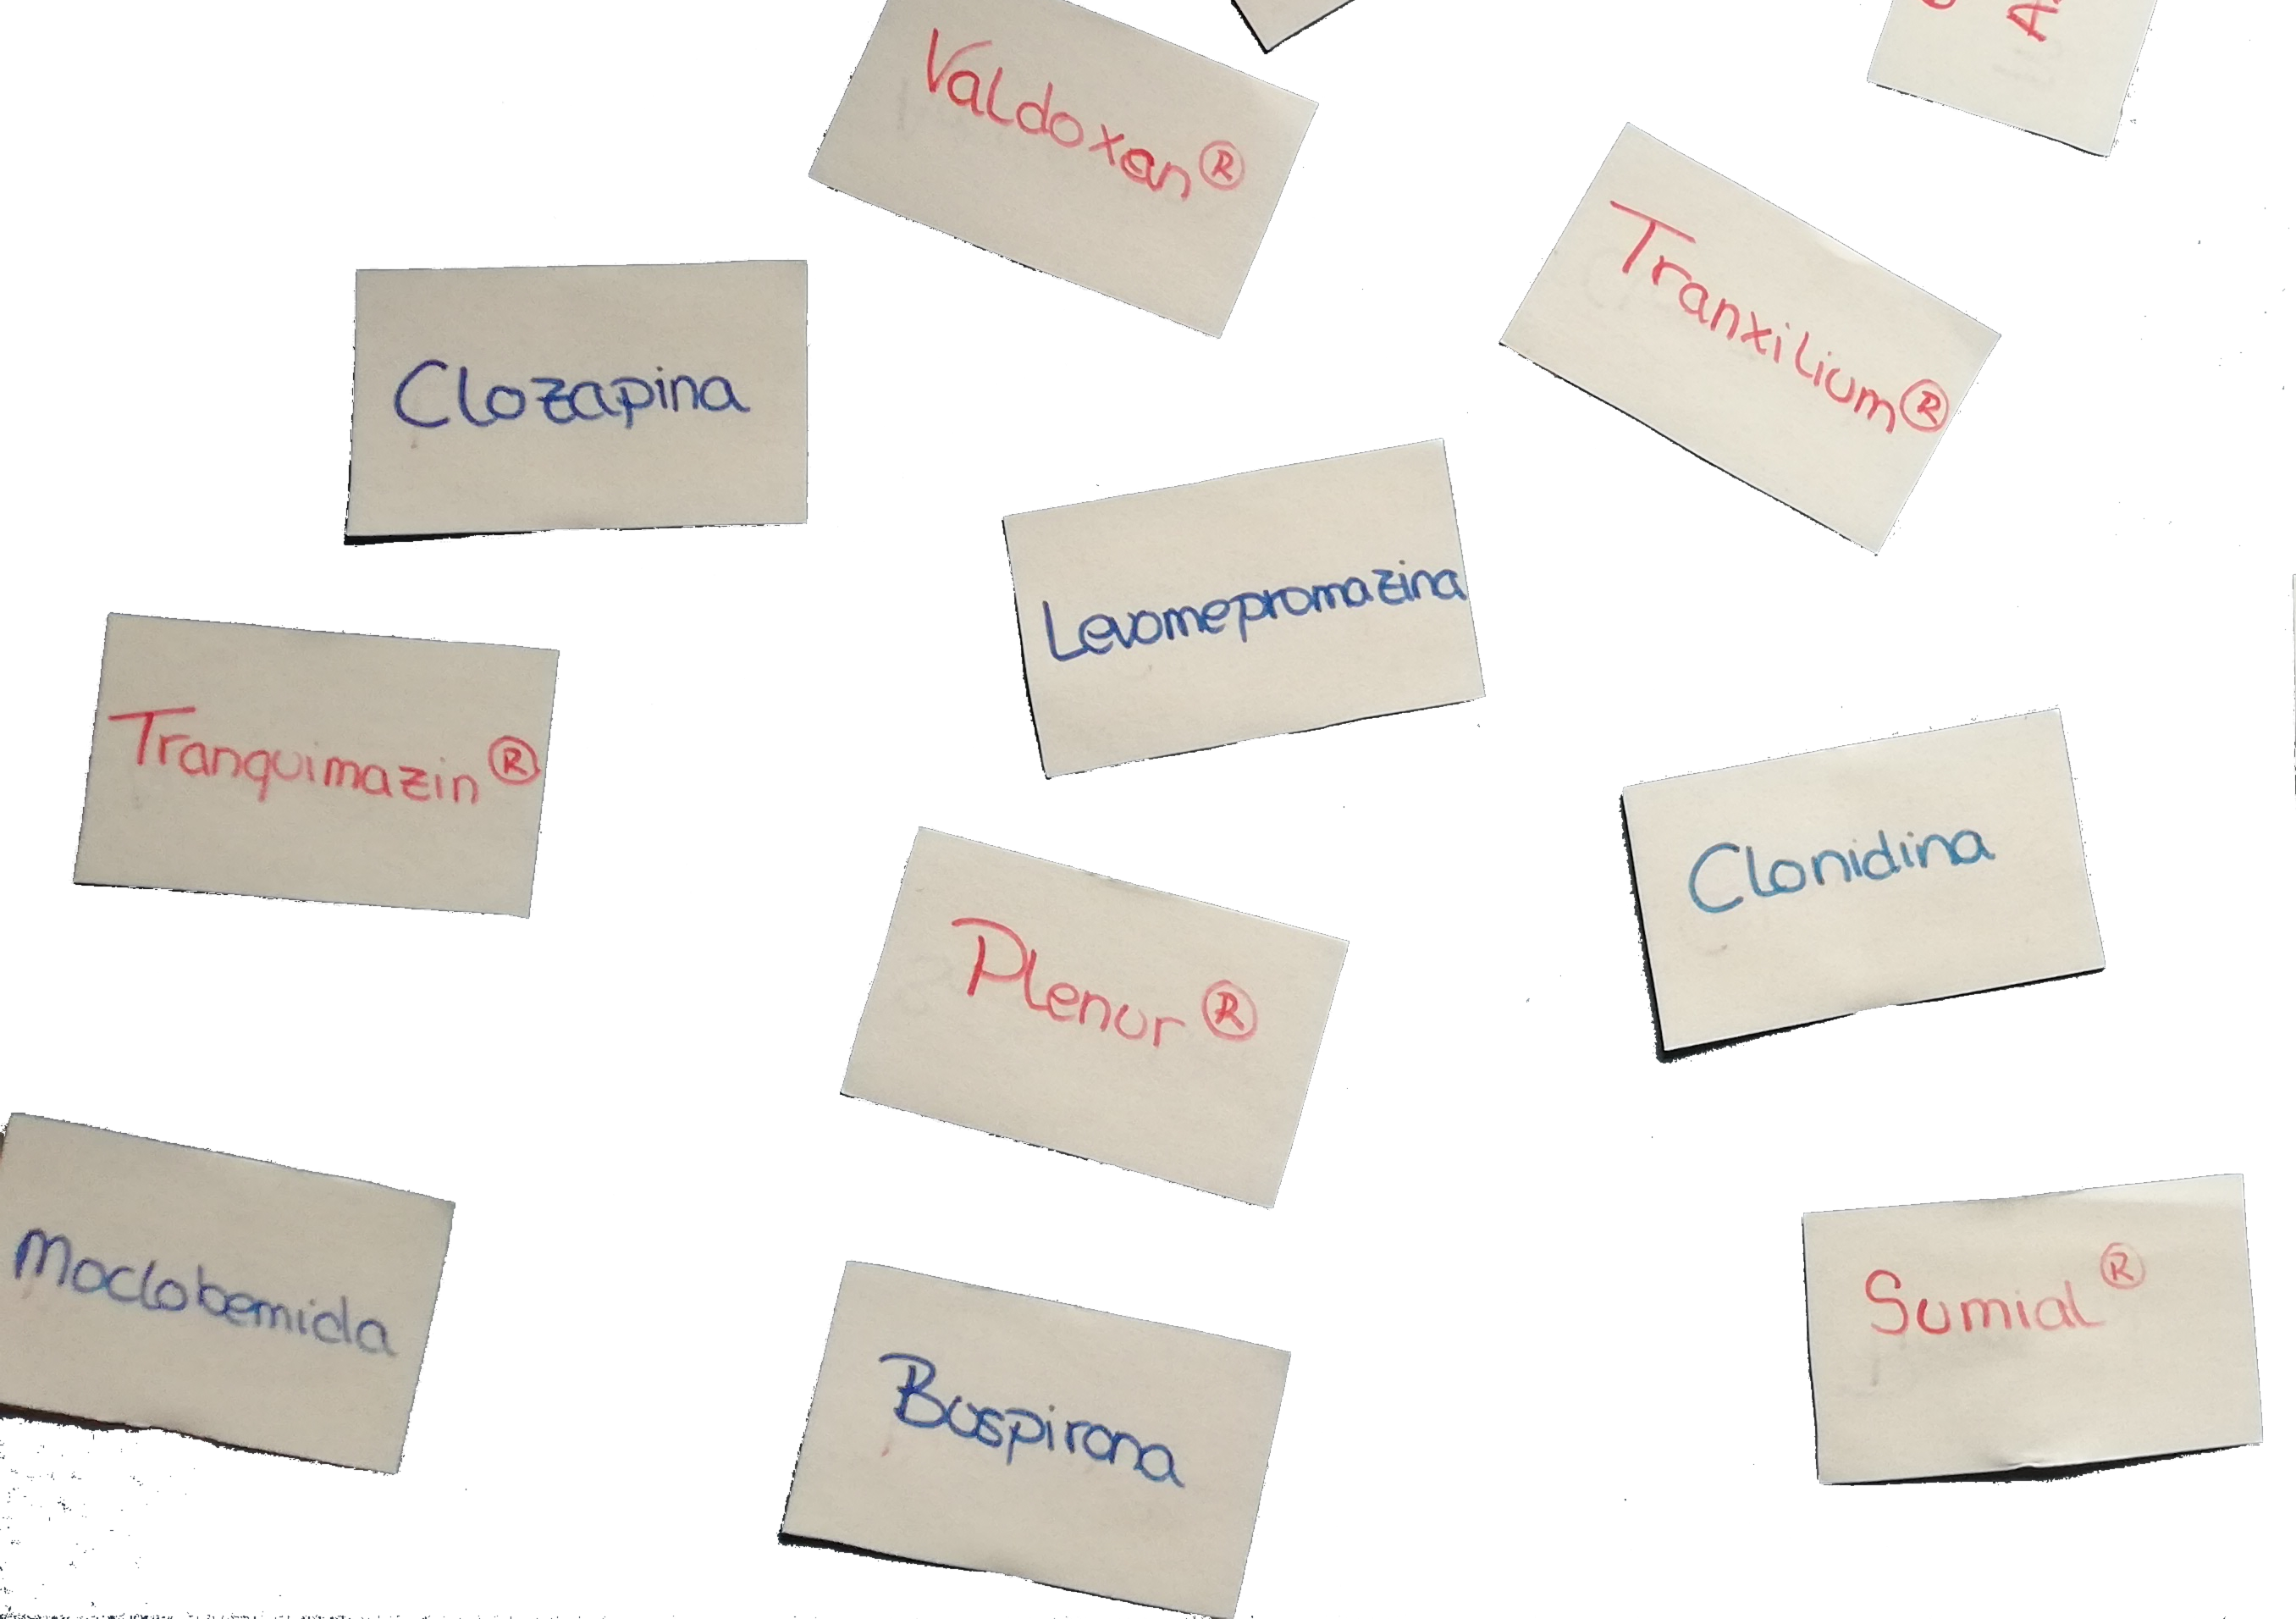 Valdoxan®
Tranxilium®
Clozapina
Levomepromazina
Tranquimazin®
Clonidina
Plenur®
Moclobemida
Sumial®
Buspirona